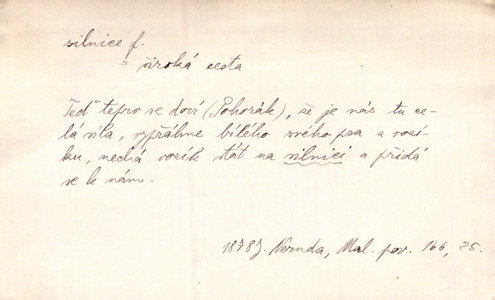 silnice f.
= široká cesta
Teď teprv se doví (Pohorák), že je nás tu ce-
lá síla, vypřáhne bílého svého psa a vozí-
ku, nechá vozík stát na silnici a přidá
se k nám.
1878 J. Neruda, Mal. pov. 166, 25.